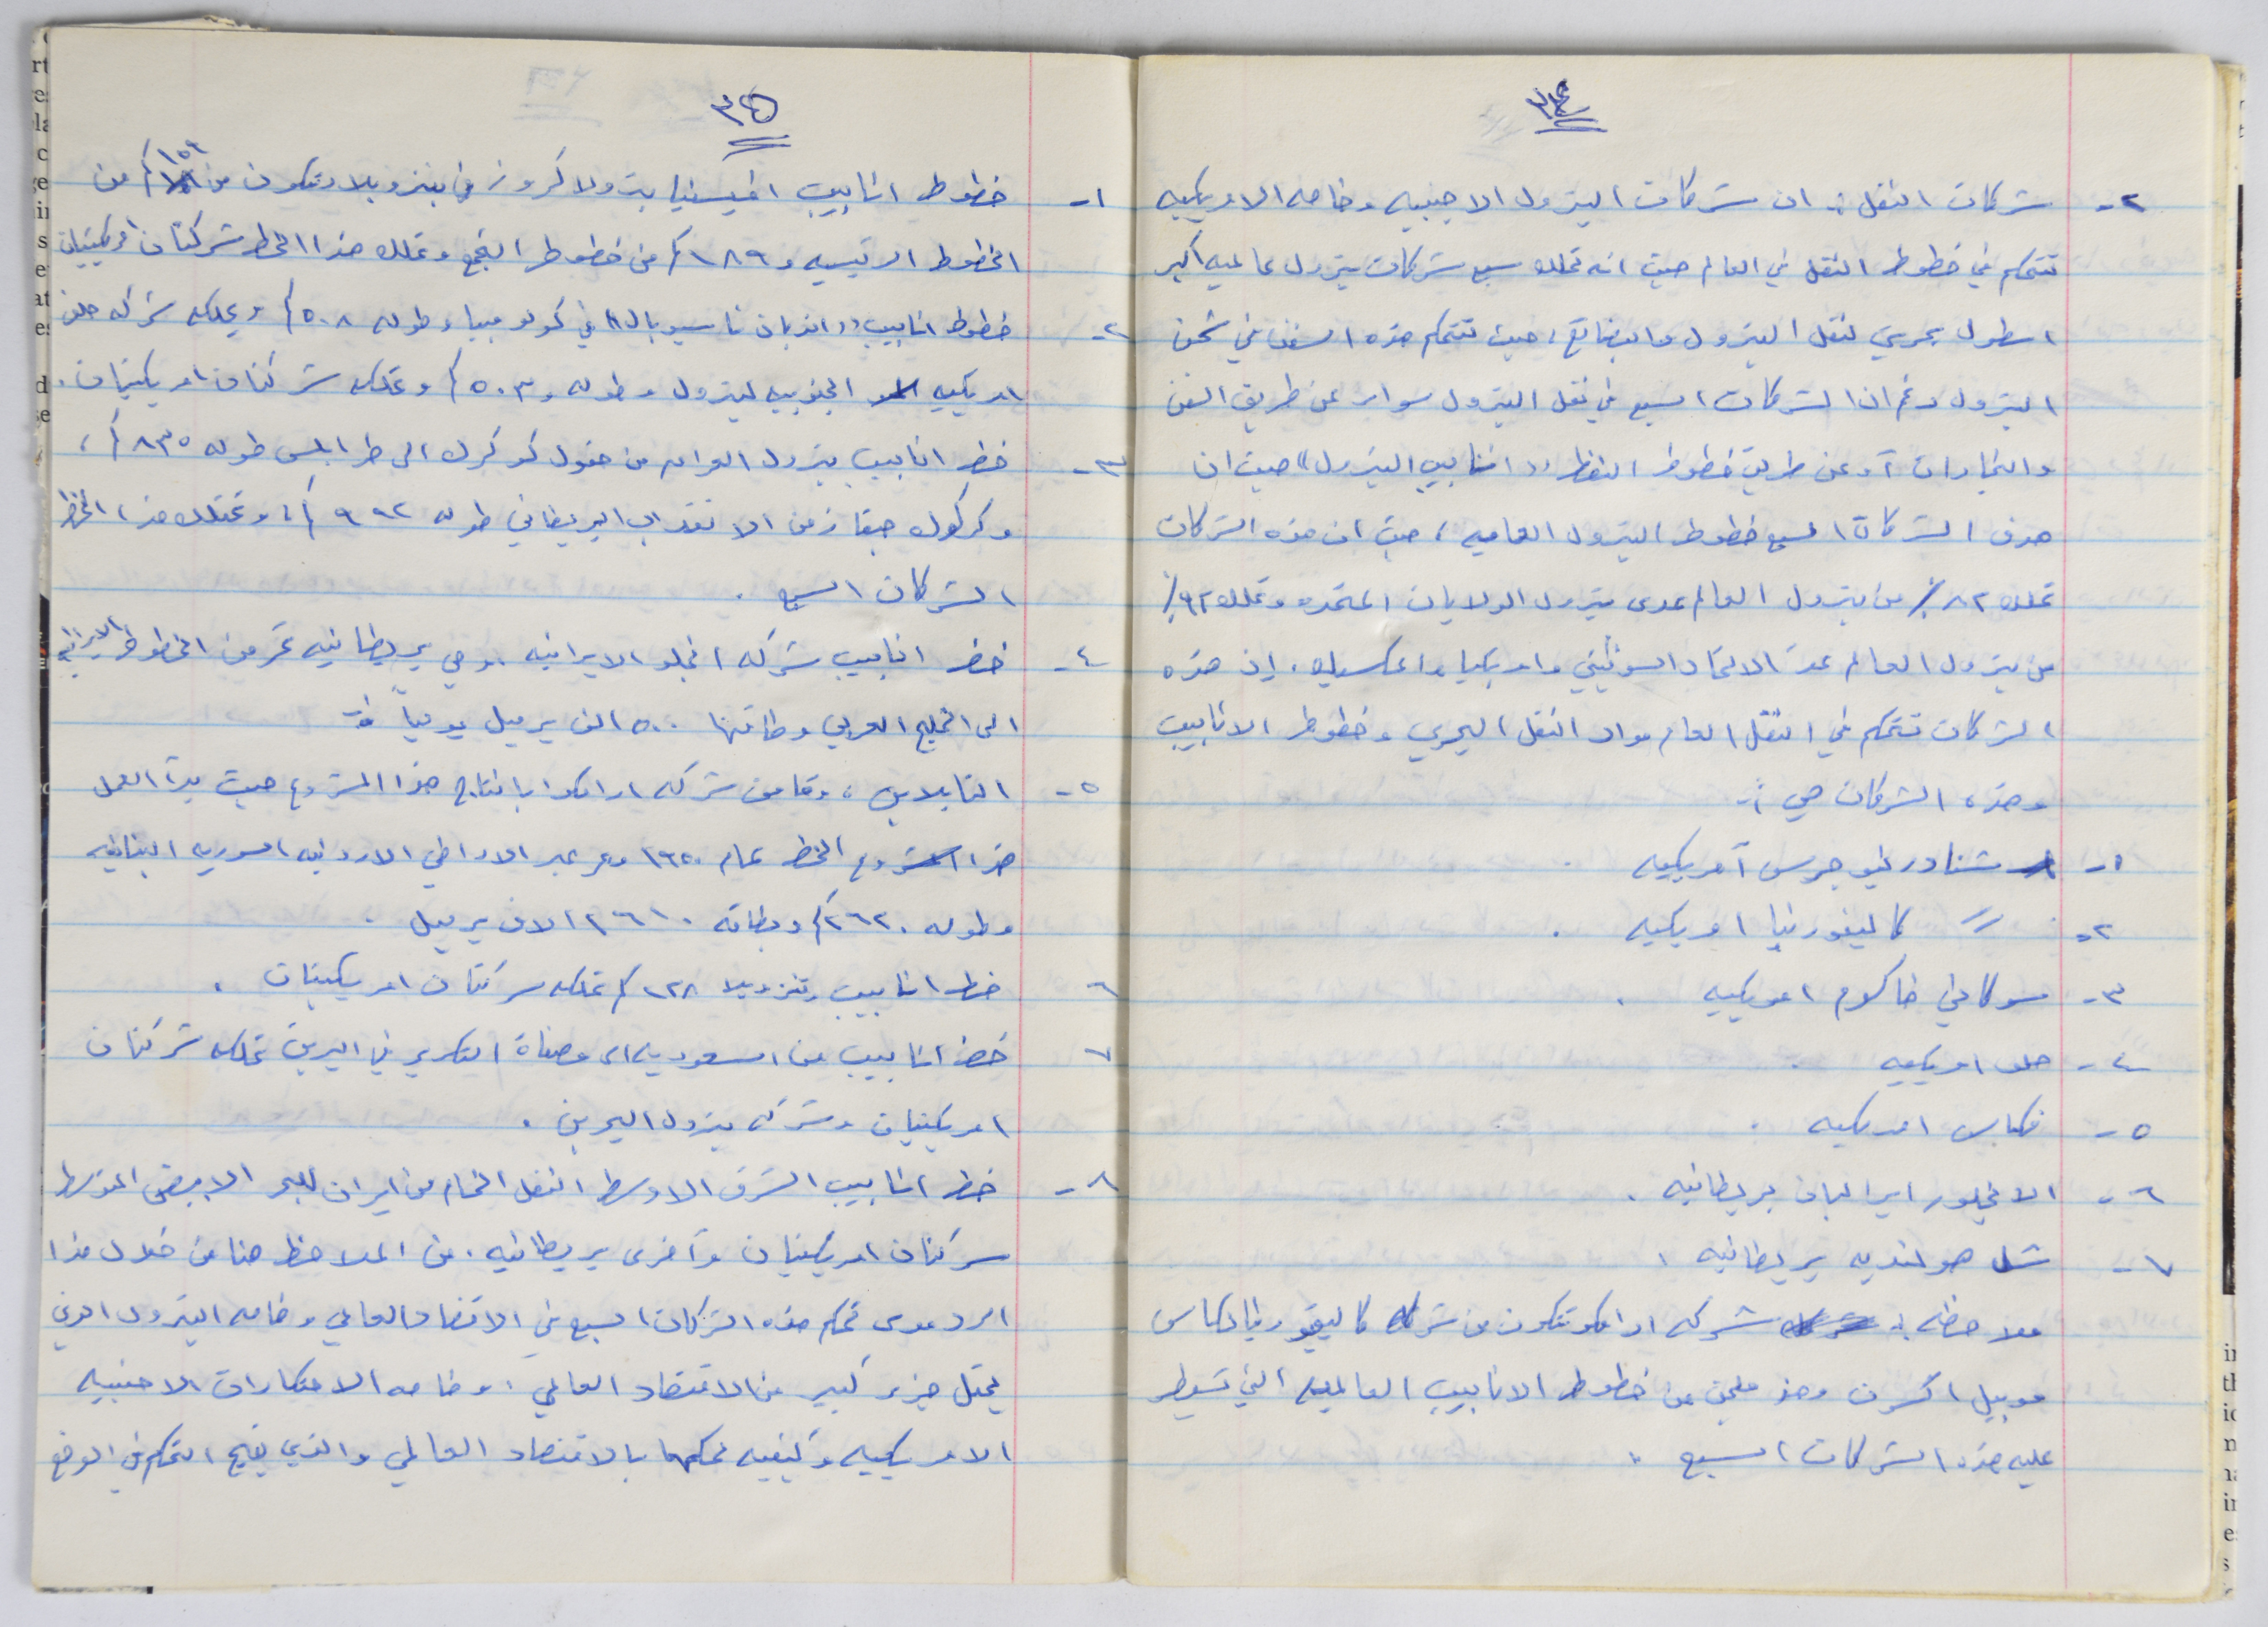 ٣٤
٢- شركات النقل :- ان شركات البترول الاجنبيه وخاصه الامريكيه
تتحكم في خطوط النقل في العالم حيث انه تملك سبع شركات بترول عالميه أكبر
اسطول بحري لنقل البترول والبضائع، حيث تتحكم هذه السفن في شحن
البترول رغم ان الشركات السبع في نقل البترول سواء عن طريق السفن
والتجارات أو عن طريق خطوط النفط "انابيب البترول" حيث ان
هدف الشركات السبع خطوط البترول العالميه، حيث ان هذه الشركات
تملك ٨٢٪ من بترول العالم عدى بترول الولايات المتحده وتملك ٩٢٪
من بترول العالم عدا الاتحاد السوفيتي وامريكيا والمكسيك. إن هذه
الشركات تتحكم في النقل العام سواء النقل البحري وخطوط الانابيب
وهذه الشركات هي :-
١- ستنادر نيو جرسي أمريكيه .
٢- // كاليفورنيا امريكيه .
٣- سوكاني فاكوم امريكيه .
٤- جلف امريكيه .
٥- تكساس امريكيه .
٦- الانجلو ايرانيان بريطانيه .
٧- شل هولنديه بريطانيه .
ملاحظه :- شركه ارامكو تتكون من شركه كاليفورنيا تكساس
موبيل اكسون وهذ ملحق عن خطوط الانابيب العالميه التي تسيطر
عليه هذه الشركات السبع .
٣٥
١- خطوط انابيب افيسنيا بترولا كروز في فنزويلا وتتكون من ١٥٩ كم من
الخطوط الرئيسيه و ١٨٩ كم من خطوط التجمع وتملك هذا الخط شركتان امريكيتان
٢- خطوط انابيب "انديان ناسيونال" في كولومبيا وطوله ٥٠٨ كم ويملكه شركه جلف
امريكيه الجنوبيه لبترول وطوله ٥٠٣ كم وتملكه شركتان امريكيتان.
٣- خط انابيب بترول العراق من حقول كركوك الى طرابلس طوله ٨٣٥ كم،
وكركوك حيفا زمن الانتداب البريطاني طوله ٩٩٢ كم، وتمتلك هذا الخط
الشركات السبع .
٤- خط انابيب شركه انجلو الايرانيه . وهي بريطانيه تمر من الخطوط الايراني
الى الخليج العربي وطاقتها ٥٠٠ الف برميل يومياً
٥- التابلاين، وقامت شركه ارامكو بانتاج هذا المشروع حيث بدأ العمل
هذا الخط عام ١٩٥٠ ومر عبر الاراضي الاردنيه السوريه البنانيه
وطوله ٢٦٢٠ كم وبطاقه الاف برميل .
٦- خط انابيب فنزويلا ١٢٨ كم تملكه شركتان امريكيتان .
٧- خط انابيب من السعوديه الى مصفاة التكرير في البحرين تملكه شركتان
امريكيتان وشركه بترول البحرين .
٨- خط انابيب الشرق الاوسط النقل الخام من ايران للبحر الابيض المتوسط
شركتان امريكيتان وأخرى بريطانيه . من الملاحظ هنا من خلال هذا
السرد مدى تحكم هذه الشركات السبع في الاقتصاد العالمي وخاصه البترول الذي
يمثل جزء كبير من الاقتصاد العالمي . وخاصه الاحتكارات الاجنبيه
الامريكيه وكيفيه تحكمها بالاقتصاد العالمي والذي يتيح التحكم في الوضع